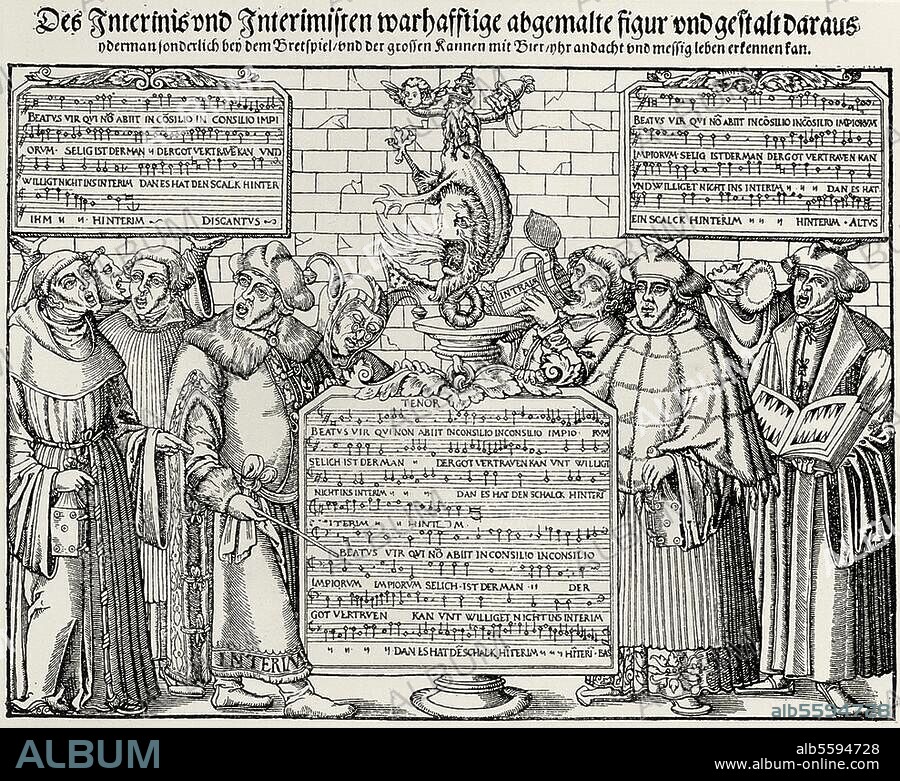 Des Interims vnd Interimisten warhafftige abgemalte figur vnd gestalt daraus
yderman sonderlich bey dem Bretspiel/vnd der grossen Kannen mit Bier/yhr andacht vnd messig leben erkennen kan.
BEATVS VIR QVI NŌ ABIIT IN CŌSILIO IN CONSILIO IMPI
ORVM · SELIG IST DER MAN " DER GOT VERTRAVE KAN VND
WILLIGT NICHT INS INTERIM DAN ES HAT DEN SCALK HINTER
IHM " " HINTERIM DISCANTVS
BEATVS VIR QVI NŌ ABIIT IN CŌSILIO IN CŌSILIO IMPIORVM
IMPIORVM SELIG IST DER MAN DER GOT VERTRAVEN KAN
VND WILLIGET NICHT INS INTERIM " " " DAN ES HAT
EIN SCALCK HINTERIM " " " HINTERIM · ALTVS
INTRAP
TENOR
BEATVS VIR QVI NON ABIIT IN CONSILIO IN CONSILIO IMPIO RVM
SELICH IST DER MAN " DER GOT VERTRAVEN KAN VNT WILLIGT
NICHT INS INTERIM " " " DAN ES HAT DEN SCHALCK HINTERI
BEATVS VIR QVI NŌ ABIIT IN CONSILIO IN CONSILIO
IMPIORVM IMPIORVM SELICH · IST DER MAN " DER
GOT VERTRVEN KAN VNT WILLIGET NICHT INS INTERIM
" " " " DAN ES HAT DĒ SCHALK HĪTERIM " " " HĪTERI · BAS
INTERIM
ALBUM
alb5594728
alb5594728
www.album-online.com